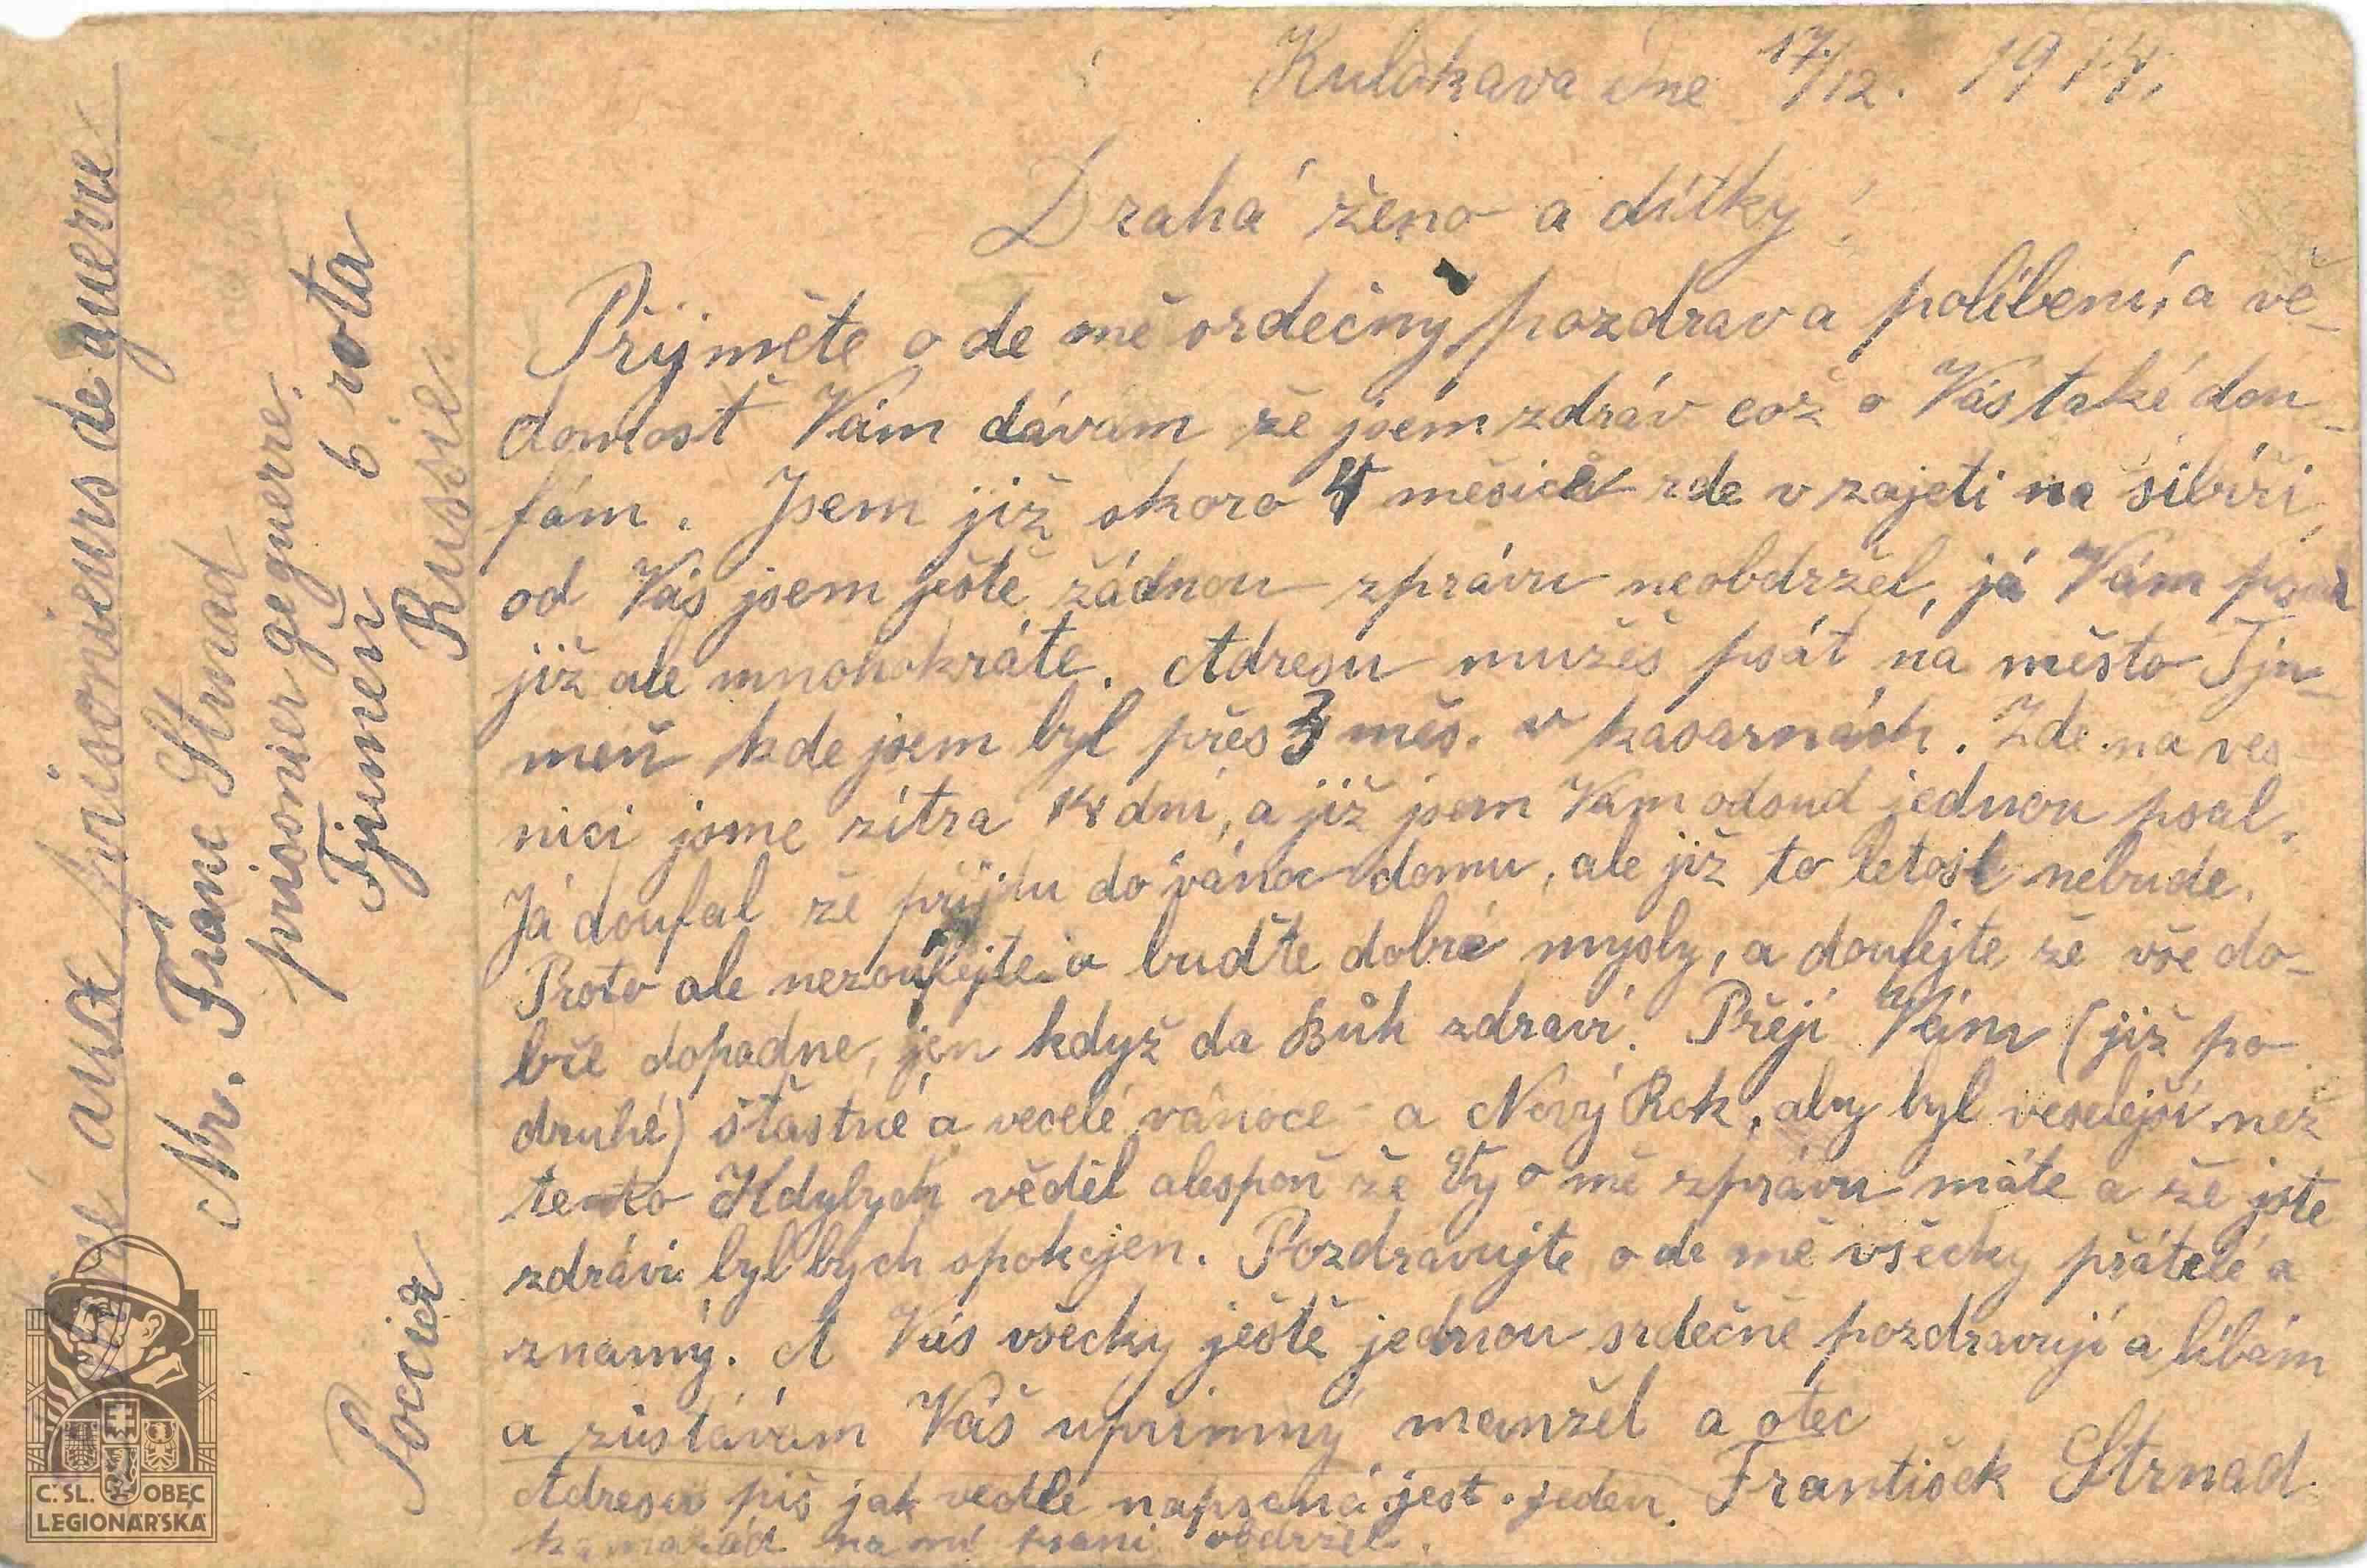 Kulakava dne 17/12. 1914.
Drahá ženo a dítky!
Přijměte ode mě srdečný pozdrav a políbení, a vě-
domost Vám dávám že jsem zdráv což o Vás také dou-
fám. Jsem již skoro 4 měsíce zde v zajetí na sibiři,
od Vás jsem ještě žádnou zprávu neobdržel, já Vám psal
již ale mnohokráte. Adresu mužeš psát na město Tju-
meň kde jsem byl přes 3 měs. v kasarnách. Zde na ves-
nici jsme zítra 14 dní, a již jsem Vám odsud jednou psal.
Já doufal že přijdu do vánoc domu, ale již to letos nebude.
Proto ale nezoufejte a buďte dobré mysly, a doufejte že vše do-
bře dopadne, jen když da Bůh zdraví. Přejí Vám (již po
druhé) šťastné a veselé vánoce a Nový Rok, aby byl veselejší než
tento Kdybych věděl alespoň že Vy o mě zprávu máte a že jste
zdrávi byl bych spokojen. Pozdravujte ode mě všecky přátelé a
znamý. A Vás všecky ještě jednou srdečně pozdravují a líbám
a zůstávám Váš upřimný manžel a otec
František Strnad.
Adresu piš jak vedle napsaná jest. jeden
kamarád na ní psaní obdržel.
aux prisonieurs de guerre
Mr. Franc Strnad
prisonier ge guerre.
Tjumeň 6 rota
Russie.